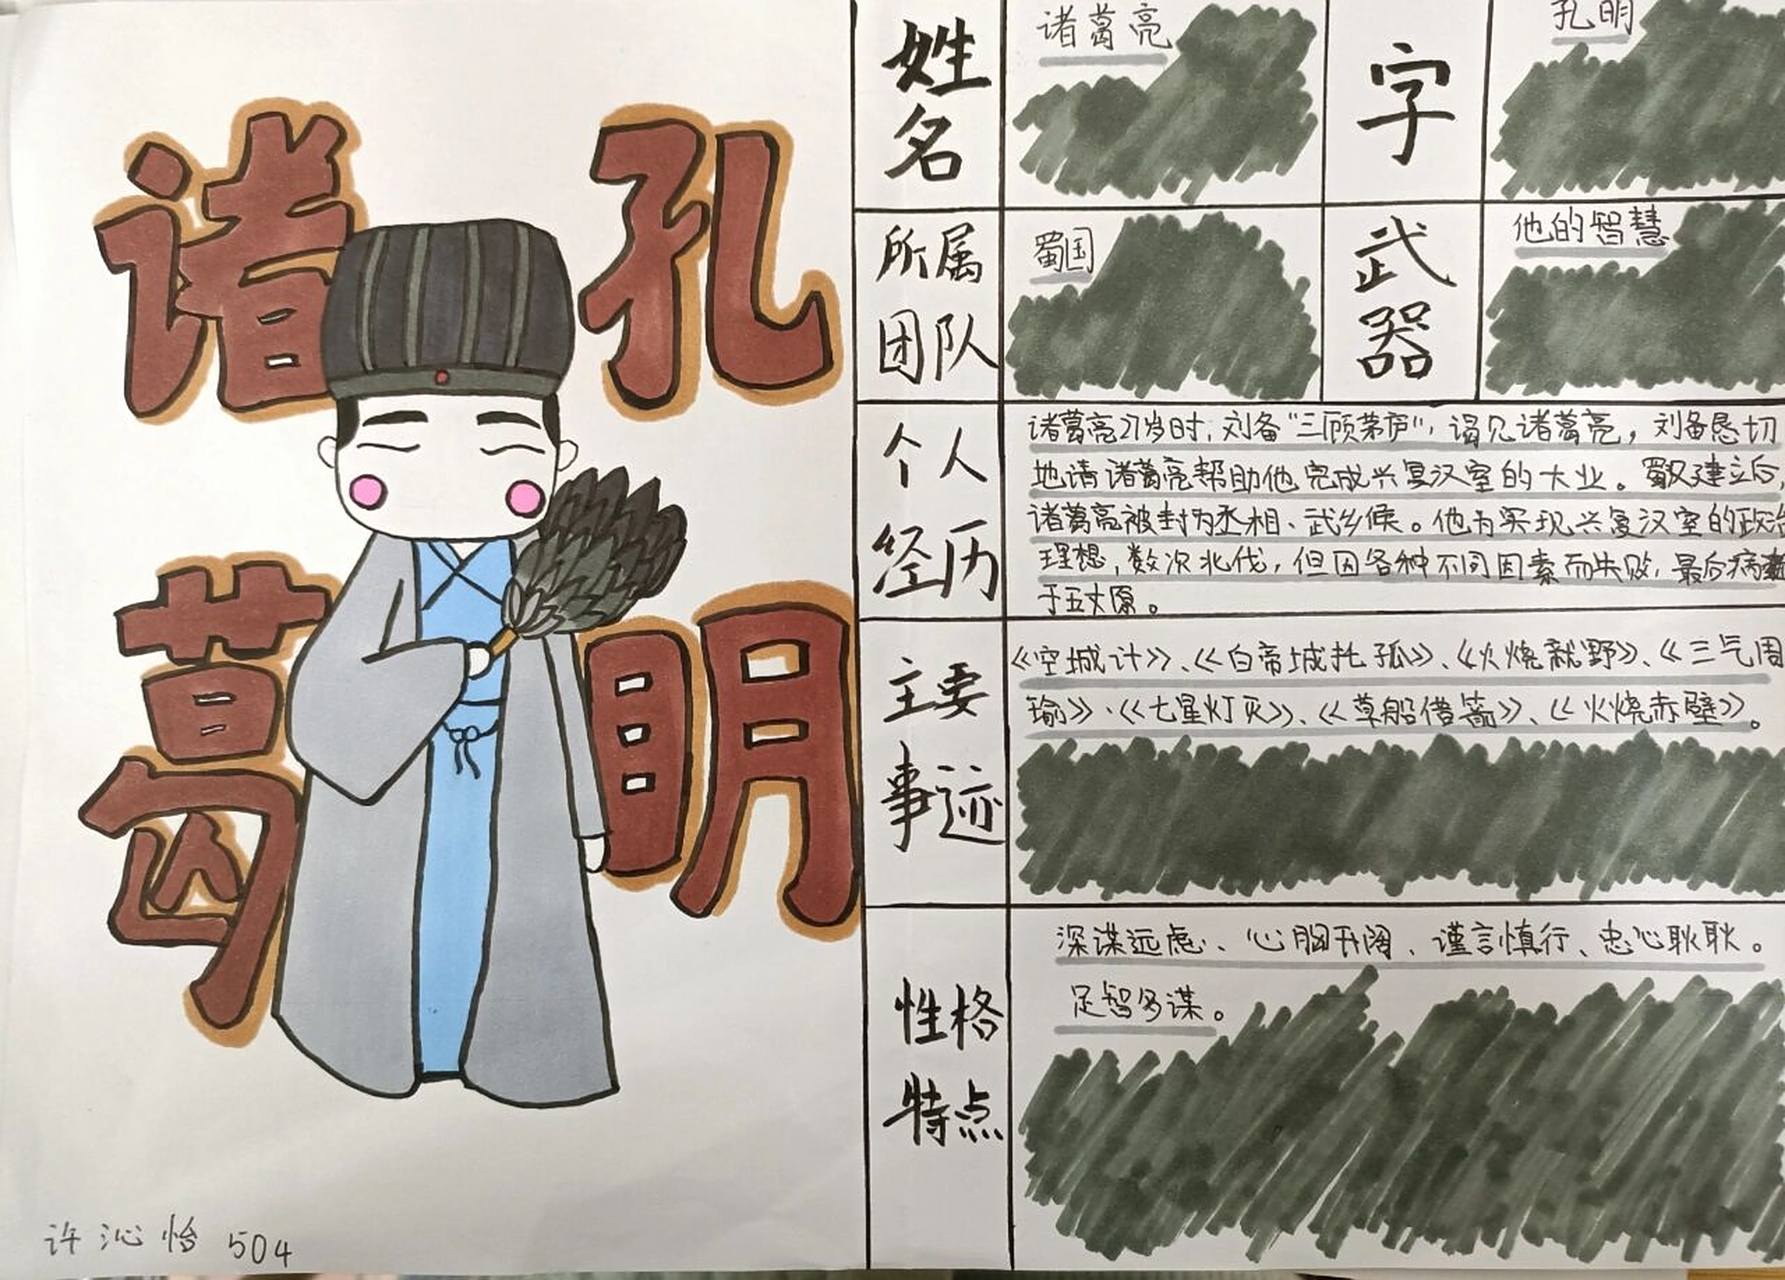 诸葛
孔明
姓名
诸葛亮
字
孔明
所属
团队
蜀国
武器
他的智慧
个人
经历
诸葛亮27岁时,刘备“三顾茅庐”,谒见诸葛亮,刘备恳切
地请诸葛亮帮助他完成兴复汉室的大业。蜀汉建立后,
诸葛亮被封为丞相、武乡侯。他为实现兴复汉室的政治
理想,数次北伐,但因各种不同因素而失败,最后病逝
于五丈原。
主要
事迹
《空城计》、《白帝城托孤》、《火烧新野》、《三气周
瑜》、《七星灯灭》、《草船借箭》、《火烧赤壁》。
性格
特点
深谋远虑、心胸开阔、谨言慎行、忠心耿耿。
足智多谋。
许沁怡 504